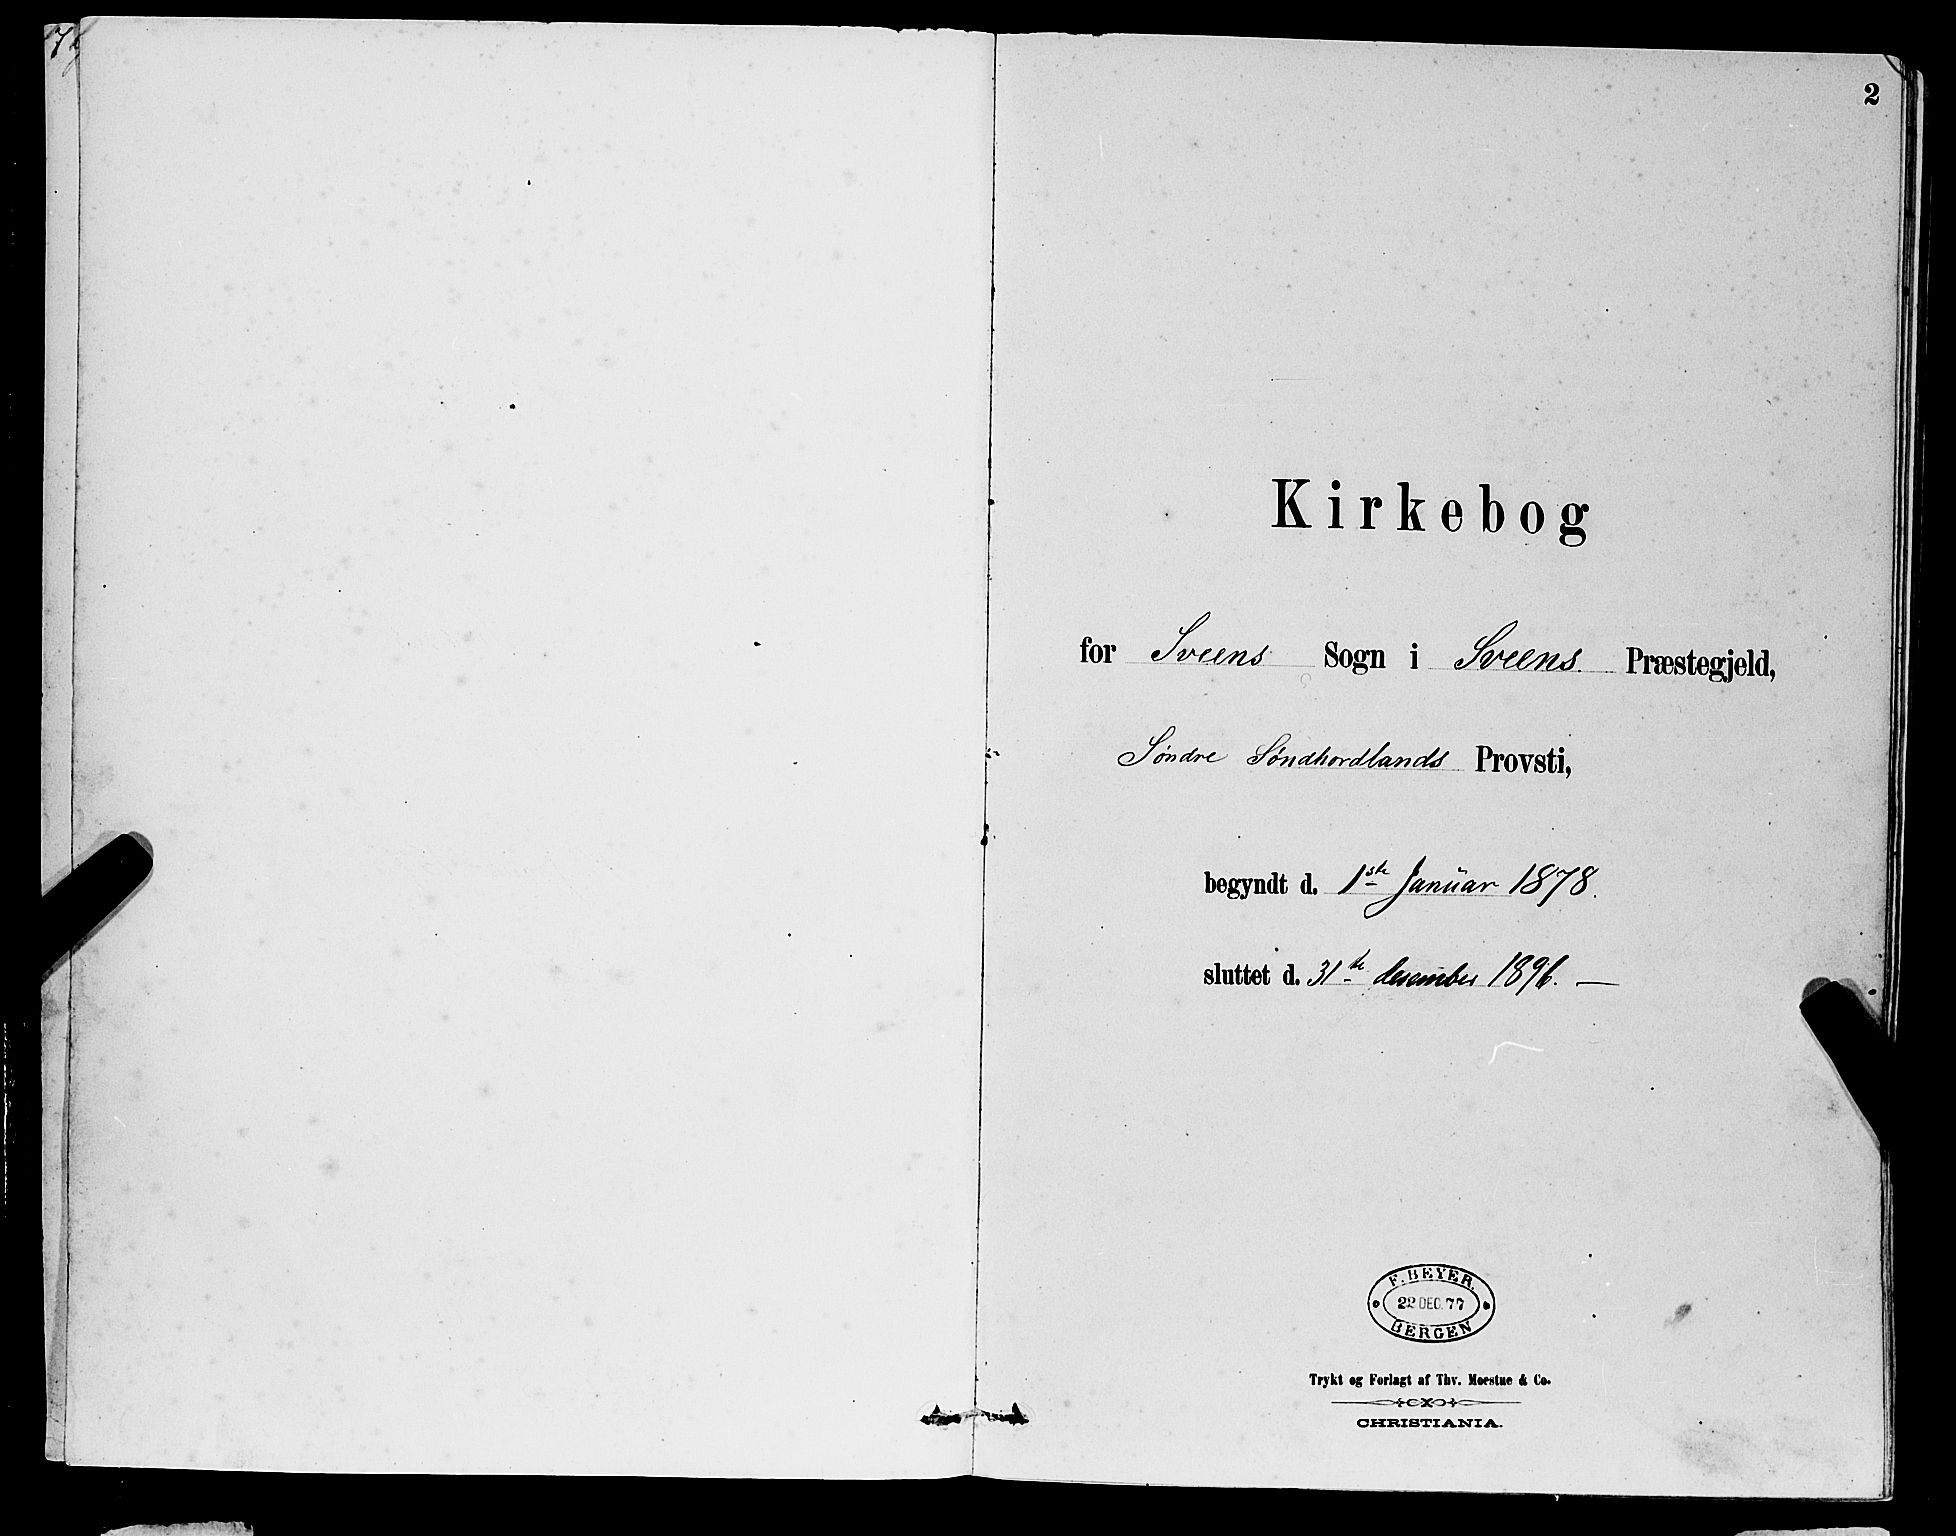 2
Kirkebog
for Sveens Sogn i Sveens Præstegjeld,
Søndre Søndhordlands Provsti,
begyndt d. 1ste Januar 1878.
sluttet d. 31te desember 1896. —
F. BEYER.
22 DEC. 77
BERGEN
Trykt og Forlagt af Thv. Moestue & Co.
CHRISTIANIA.